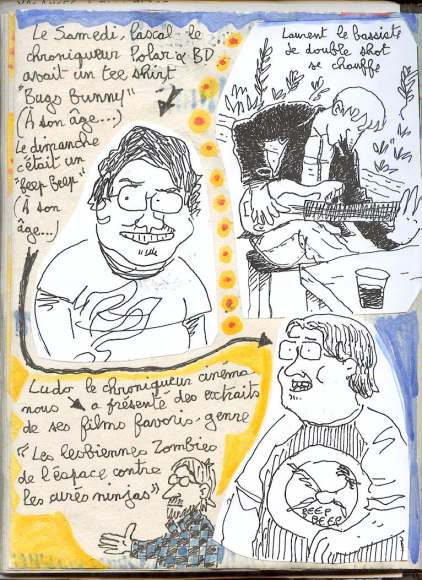 Le Samedi, Pascal le
chroniqueur Polar & BD
avait un tee shirt
"Bugs Bunny"
(À son âge...)
Le dimanche
c'était un
"Beep Beep"
(À son
âge...)
Laurent le bassiste
de double shot
se chauffe
BEEP
BEEP
Ludo le chroniqueur cinéma
nous a présenté des extraits
de ses films favoris. genre
"Les lesbiennes Zombies
de l'espace contre
les curés ninjas"